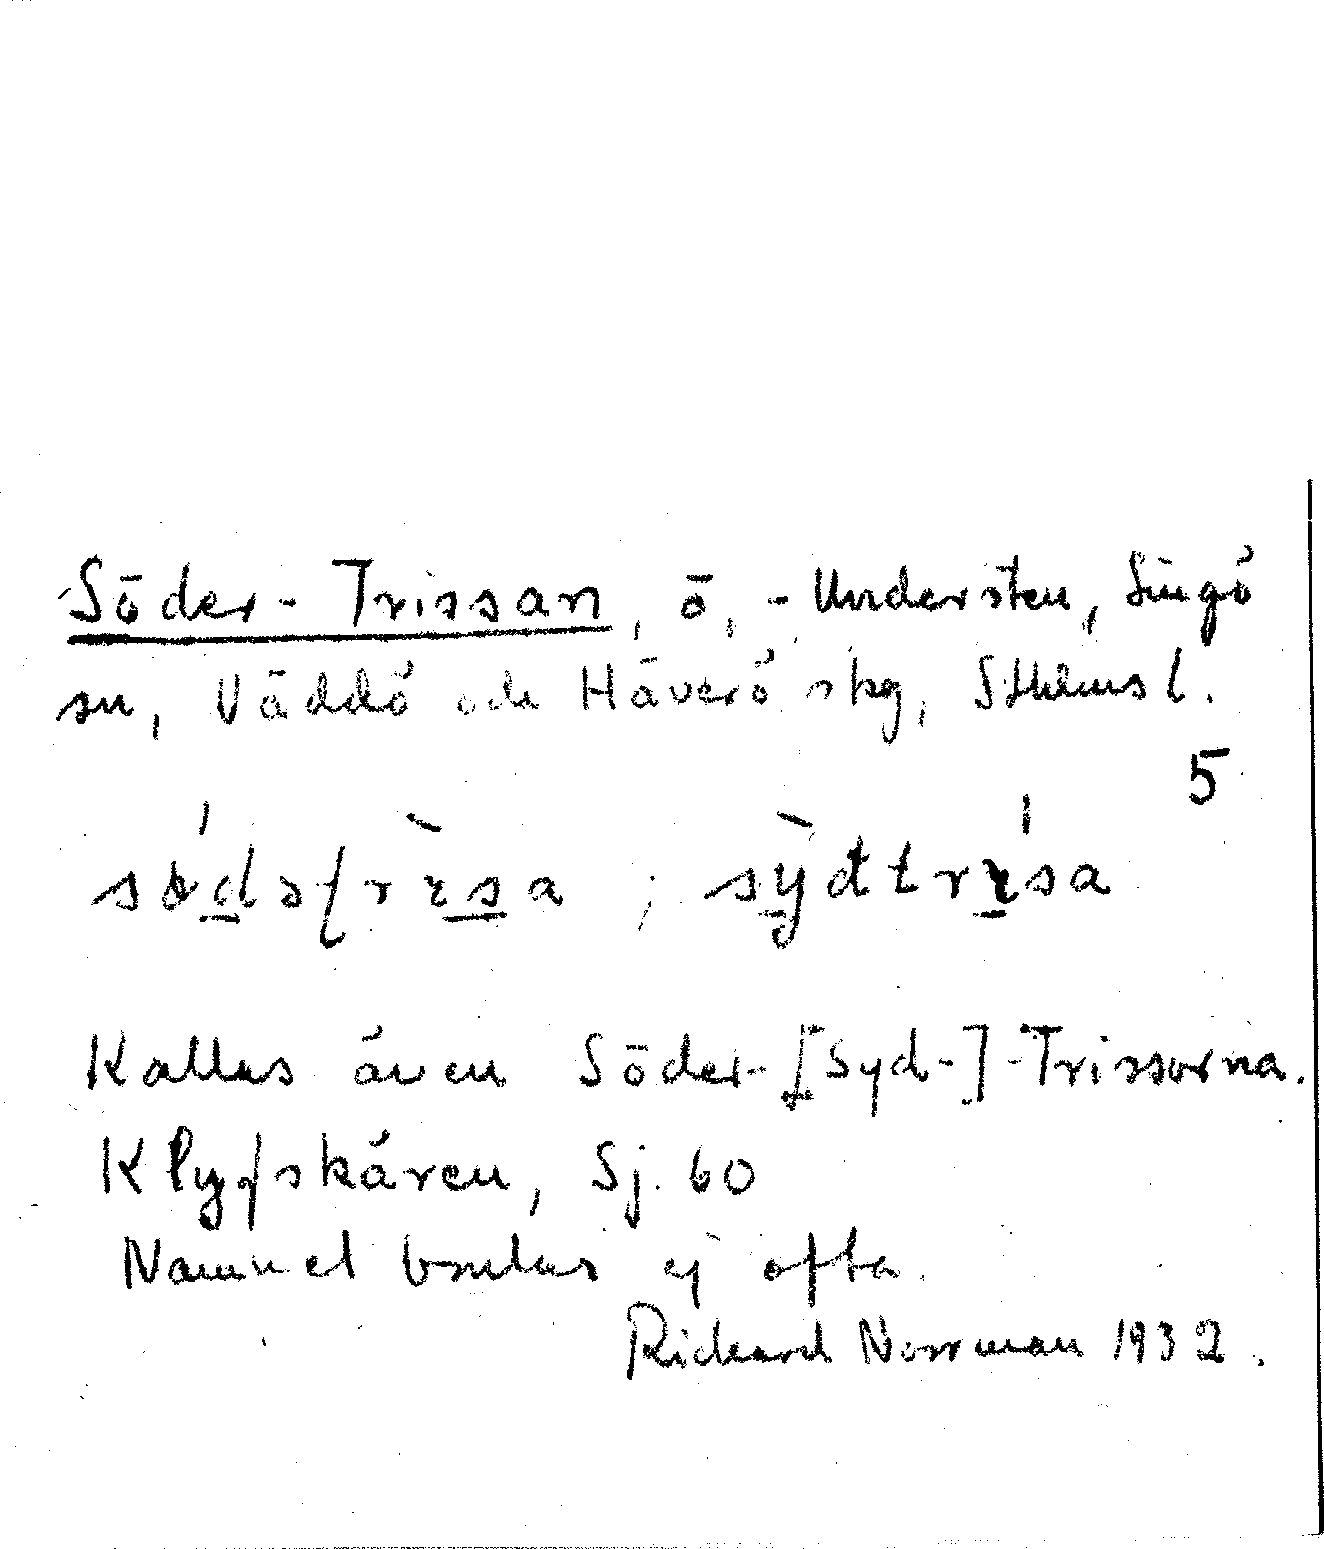 Söder-Trissan, ö, - Understen, Singö
sn, Väddö och Häverö skg, Sthlms l.
5
Kallas även Söder-[Syd-]-Trissorna.
Klyfskären, Sj. 60
Namnet brukas ej ofta.
Richard Norrman 1932.